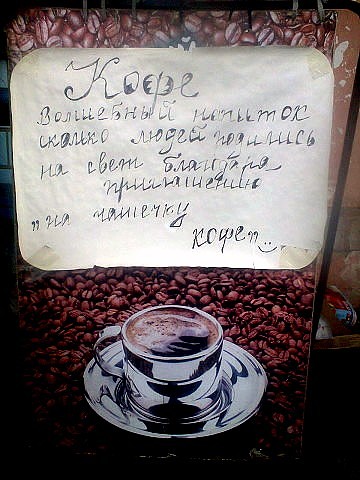 Кофе
Волшебный напиток
сколко людей родились
на свет благодаря
приглашению
„на чашечку
кофе"